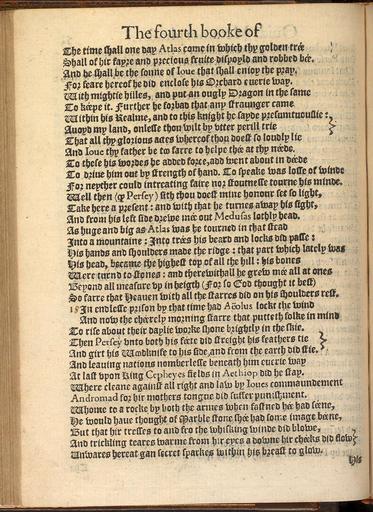 The fourth booke of
The time shall one day Atlas come in which thy golden trée
Shall of hir fayre and precious fruite dispoyld and robbed bée.
And he shall be the sonne of Ioue that shall enioy the pray.
For feare hereof he did enclose his Orchard euerie way
With mightie hilles, and put an ougly Dragon in the same
To kéepe it. Further he forbad that any straunger came
Within his Realme, and to this knight he sayde presumtuouslie:
Auoyd my land, onlesse thou wilt by vtter perill trie
That all thy glorious actes whereof thou doest so loudly lie
And Ioue thy father be to farre to helpe thée at thy néede.
To these his wordes he added force, and went about in déede
To driue him out by strength of hand. To speake was losse of winde
For neyther could intreating faire nor stournesse tourne his minde.
Well then (qp Persey) sith thou doest mine honour set so light,
Take here a present: and with that he turnes away his sight,
And from his left side drewe mée out Medusas lothly head.
As huge and big as Atlas was he tourned in that stead
Into a mountaine: Into trées his beard and lockes did passe:
His hands and shoulders made the ridge: that part which lately was
His head, became the highest top of all the hill: his bones
Were turnd to stones: and therewithall he grew mée all at ones
Beyond all measure vp in heigth (For so God thought it best)
So farre that Heauen with all the starres did on his shoulders rest.
In endlesse prison by that time had Aëolus lockt the wind
And now the cheerely morning starre that putteth folke in mind
To rise about their daylie worke shone brightly in the skie.
Then Persey vnto both his féete did streight his feathers tie
And girt his Woodknife to his side, and from the earth did stie.
And leauing nations nomberlesse beneath him euerie way
At last vpon King Cepheyes fields in Aethiop did he stay.
Where cleane against all right and law by Ioues commaundement
Andromad for hir mothers tongue did suffer punishment.
Whome to a rocke by both the armes when fastned hée had séene,
He would haue thought of Marble stone shée had some image béene,
But that hir tresses to and fro the whisking winde did blowe,
And trickling teares warme from hir eyes a downe hir chéeks did flow
Unwares hereat gan secret sparkes within his breast to glow.
His